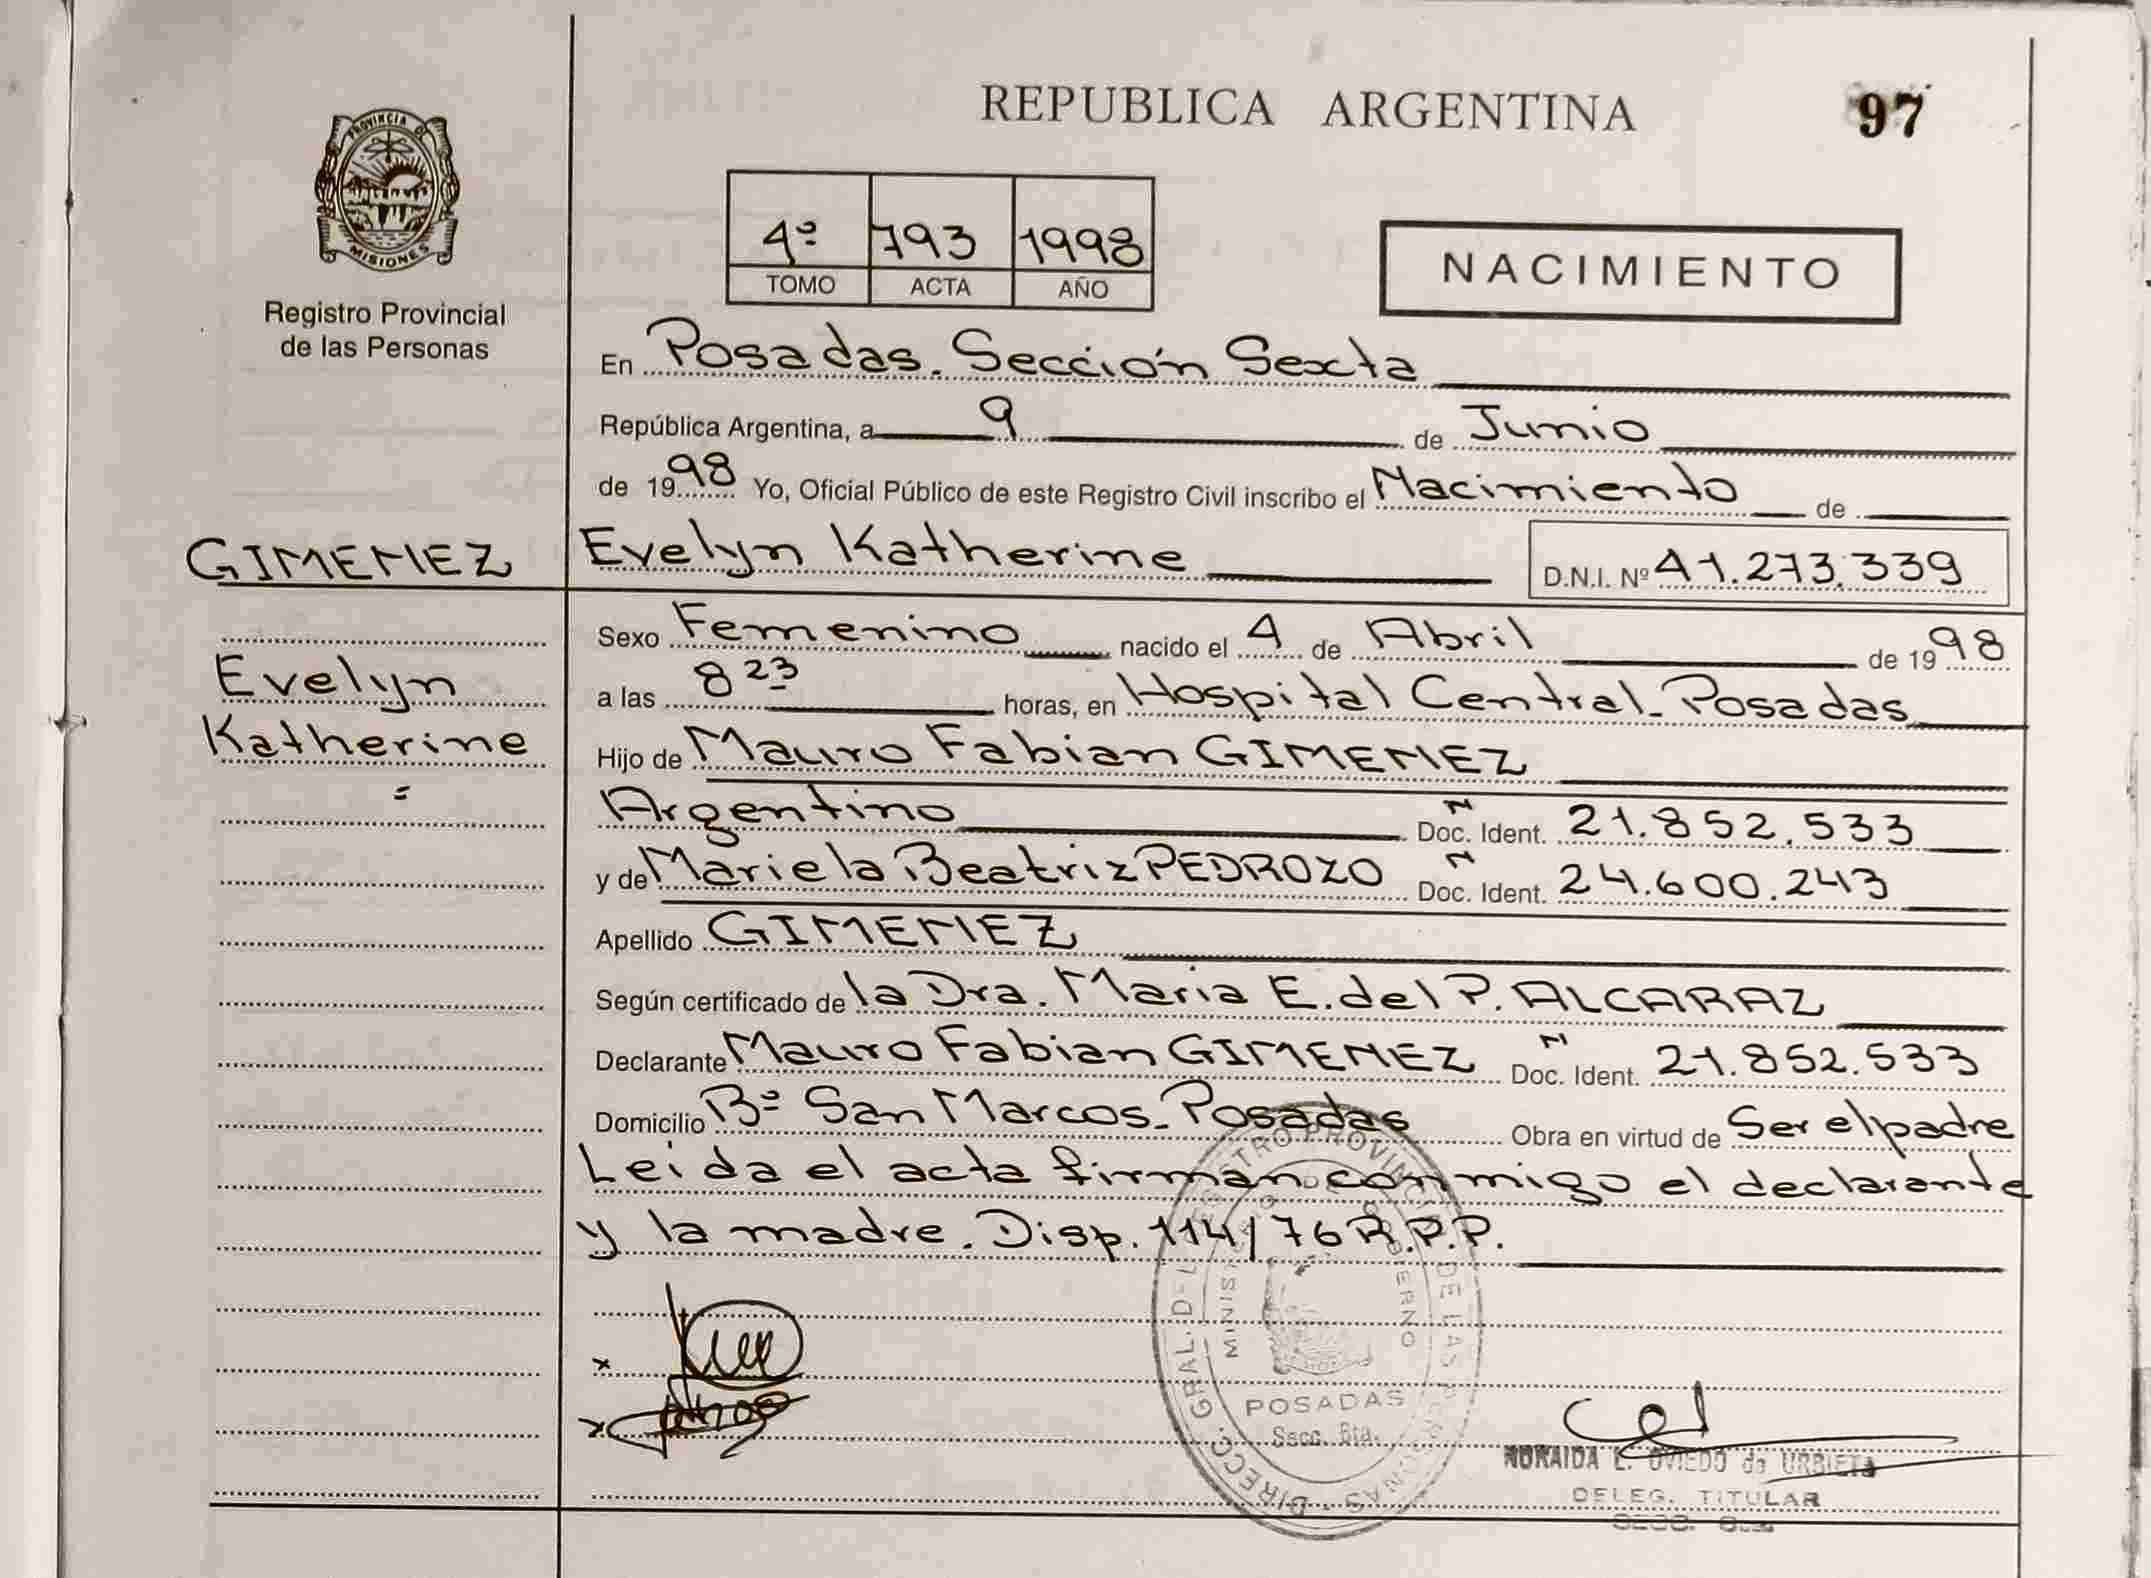 REPUBLICA ARGENTINA
97
PROVINCIA DE
MISIONES
Registro Provincial
de las Personas
4º 793 1998
TOMO ACTA AÑO
NACIMIENTO
En Posadas. Sección Sexta
República Argentina, a 9 de Junio
de 1998 Yo, Oficial Público de este Registro Civil inscribo el Nacimiento de
GIMENEZ
Evelyn Katherine
D.N.I. Nº 41.273.339
Evelyn
Katherine
Sexo Femenino nacido el 4 de Abril de 1998
a las 8 23 horas, en Hospital Central - Posadas
Hijo de Mauro Fabian GIMENEZ
Argentino N Doc. Ident. 21.852.533
y de Mariela Beatriz PEDROZO N Doc. Ident. 24.600.243
Apellido GIMENEZ
Según certificado de la Dra. Maria E. del P. ALCARAZ
Declarante Mauro Fabian GIMENEZ N Doc. Ident. 21.852.533
Domicilio Bº San Marcos - Posadas Obra en virtud de Ser el padre
Leida el acta firman conmigo el declarante
y la madre. Disp. 114/76 R.P.P.
DIRECC. GRAL. DEL REGISTRO PROVINCIAL DE LAS PERSONAS
GOBIERNO
POSADAS
Secc. 6ta.
L. OVIEDO de URBIETA
DELEG. TITULAR